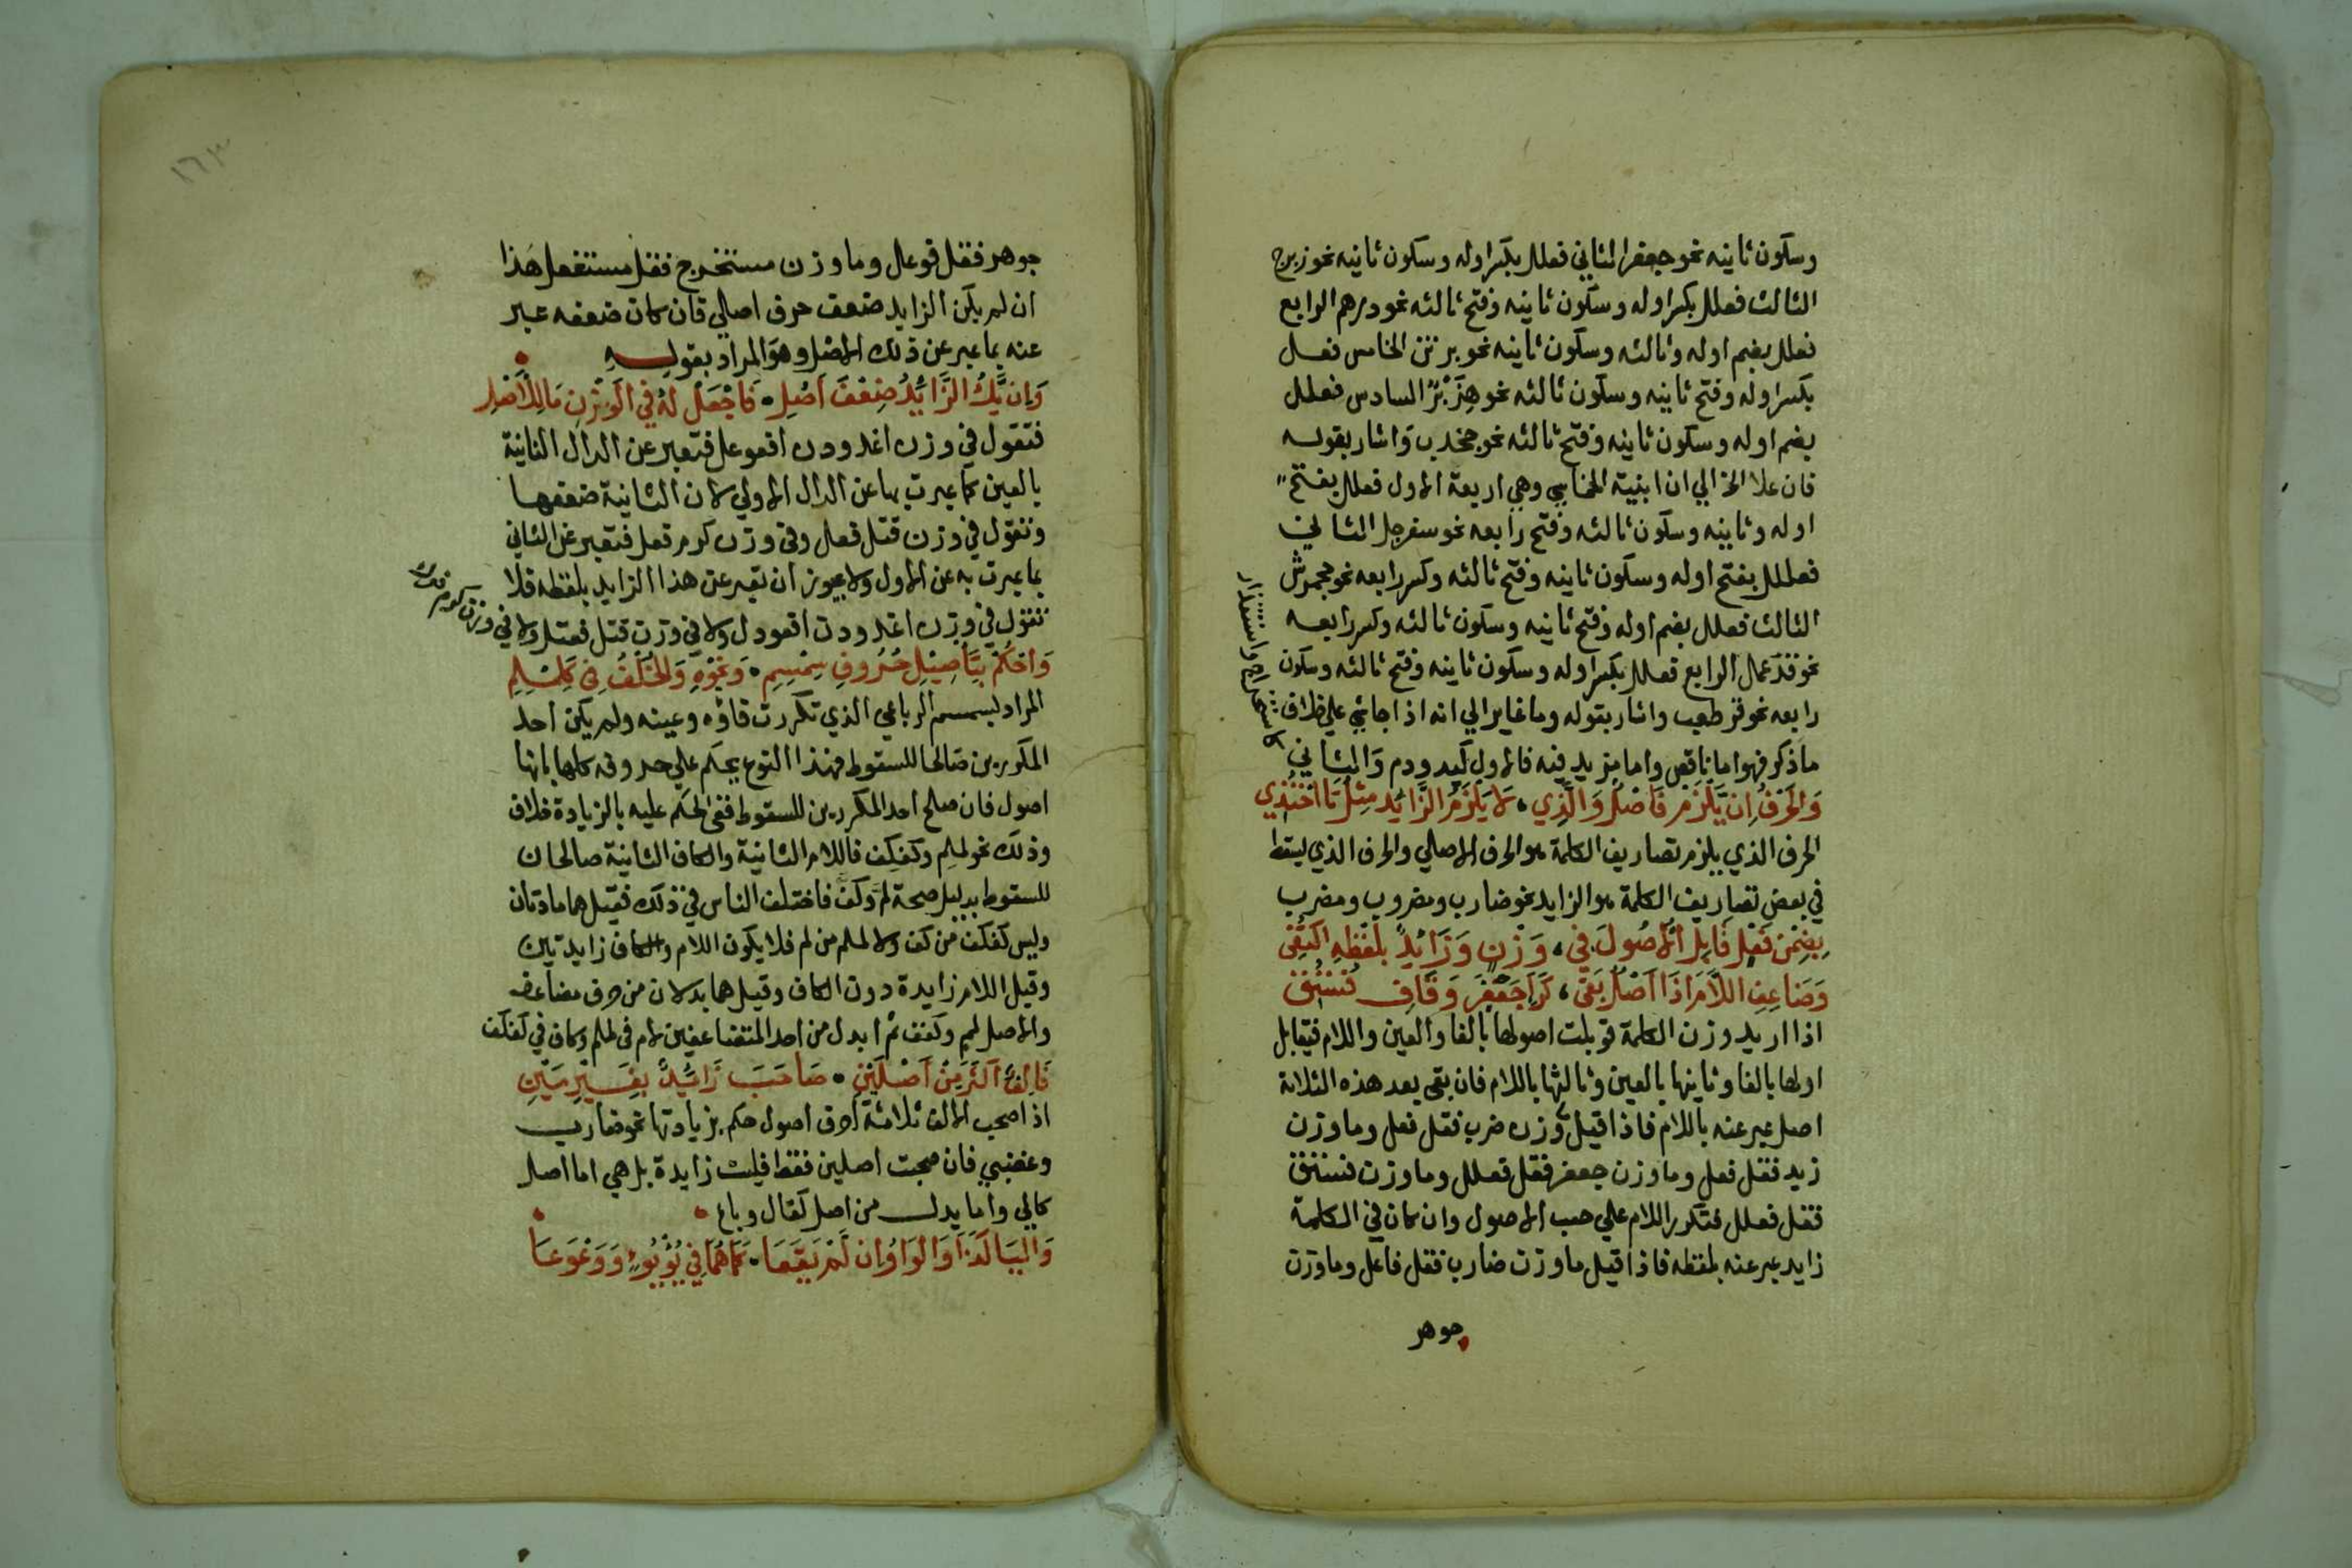 وسكون ثانيه نحو جعفر الثاني فعلل بكسر اوله وسكون ثانيه نحو زبرج
الثالث فعلل بكسر اوله وسكون ثانيه وفتح ثالثه نحو درهم الرابع
فعلل بضم اوله وثالثه وسكون ثانيه نحو برثن الخامس فعل
بكسر اوله وفتح ثانيه وسكون ثالثه نحو هِزَبْرٌ السادس فعلل
بضم اوله وسكون ثانيه وفتح ثالثه نحو جخدب واشار بقوله
فان علا الخ الي ان ابنية الخماسي وهي اربعة الاول فعلل بفتح
اوله وثانيه وسكون ثالثه وفتح رابعه نحو سفرجل الثاني
فعلل بفتح اوله وسكون ثانيه وفتح ثالثه وكسر رابعه نحو جحمرش
الثالث فعلل بضم اوله وفتح ثانيه وسكون ثالثه وكسر رابعه
نحو قذعمل الرابع فعلل بكسر اوله وسكون ثانيه وفتح ثالثه وسكون
رابعه نحو قرطعب واشار بقوله وما غاير الي انه اذا جا شي علي خلاف
ماذكر فهو اما ناقص واما مزيد فيه فالاول كيد ودم والثاني
كاستخراج واستقدار
وَالحَرْفُ اِنْ يَلْزَمْ فَاَصْلٌ وَالَّذِي، لَا يَلْزَمُ الزَّائِدُ مِثْلُ تَا احْتُذِي
الحرف الذي يلزم تصاريف الكلمة هو الحرف الاصلي والحرف الذي يسقط
في بعض تصاريف الكلمة هو الزايد نحو ضارب ومضروب ومضرب
بِضِمْنِ فِعْلٍ قَابِلِ الاُصُولَ فِي، وَزْنٍ وَزَائِدٌ بِلَفْظِهِ اكْتُفِى
وَضَاعِفِ اللَّامَ اِذَا اَصْلٌ بَقَى، كَرَا جَعْفَرٍ وَقَافِ فُسْتُقِ
اذا اريد وزن الكلمة قوبلت اصولها بالفا والعين واللام فيقابل
اولها بالفا وثانيها بالعين وثالثها باللام فان بقي بعد هذه الثلاثة
اصل عبر عنه باللام فاذا قيل وزن ضرب فقل فعل وما وزن
زيد فقل فعل وما وزن جعفر فقل فعلل وما وزن فستق
فقل فعلل فتكرر اللام علي حسب الاصول وان كان في الكلمة
زايد عبر عنه بلفظه فاذا قيل ما وزن ضارب فقل فاعل وما وزن
جوهر
١٦٣
جوهر فقل فوعال وما وزن مستخرج فقل مستفعل هَذا
ان لم يكن الزايد ضعف حرف اصلي فان كان ضعفه عبر
عنه بما عبر عن ذلك الاصل وهو المراد بقوله
وَاِن يَكُ الزَّائِدُ ضِعْفَ اَصْلِ، فَاجْعَلْ لَهُ فِي الوَزْنِ مَا لِلْاَصْلِ
فتقول في وزن اغدودن افعوعل فتعبر عن الدال الثانية
بالعين كما عبرت بها عن الدال الاولي لان الثانية ضعفها
وتقول في وزن قتل فعل وفي وزن كرم فعل فتعبر عن الثاني
بما عبرت به عن الاول ولا يجوز ان تعبر عن هذا الزايد بلفظه فلا
تقول في وزن اغدودن افعودل ولا في وزن قتل فعتل ولا في وزن كرم فعرل
وَاحْكُمْ بِتَأصِيْلِ حُرُوفِ سِمْسِمِ، وَنَحْوِهِ وَالخُلْفُ فِى كَلَمْلِمِ
المراد بسمسم الرباعي الذي تكررت فاؤه وعينه ولم يكن احد
المكررين صالحا للسقوط فهذا النوع يحكم علي حروفه كلها بانها
اصول فان صلح احد المكررين للسقوط ففي الحكم عليه بالزيادة خلاف
وذلك نحو لملم وكفكف فاللام الثانية والكاف الثانية صالحان
للسقوط بدليل صحة لم وكف فاختلف الناس في ذلك فقيل هما مادتان
وليس كفكف من كف ولا لملم من لم فلا يكون اللام والكاف زايدتين
وقيل اللام زايدة دون الكاف وقيل هما بدلان من حرف مضاعف
والاصل لمم وكفف ثم ابدل من احد المتضاعفين لام في لملم وكاف في كفكف
فَاَلِفٌ اَكْثَرَ مِنْ اَصْلَيْنِ، صَاحَبَ زَائِدٌ بِغَيْرِ مَيْنِ
اذا صحب الالف ثلاثة احرف اصول حكم بزيادتها نحو ضارب
وغضبي فان صحبت اصلين فقط فليست زايدة بل هي اما اصل
كالي واما بدل من اصل كقال وباع
وَاليَا كَذَا وَالوَاوُ اِن لَّمْ يَقَعَا، كَمَا هُمَا فِي يُؤْيُؤٍ وَوَعْوَعَا